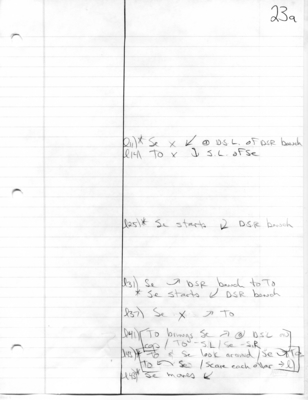 23a
* Se x ↙ @ DSL of DSR bench
To x ↓ S.L. of Se
* Se starts ↙ DSR bench
Se ↗ DSR bench to To
* Se starts ↙ DSR bench
Se x → To
To brings Se ↗ @ DSL
/ To - SL / Se - SR
To & Se look around / Se → To
To ← Se / scare each other
* Se moves ↙